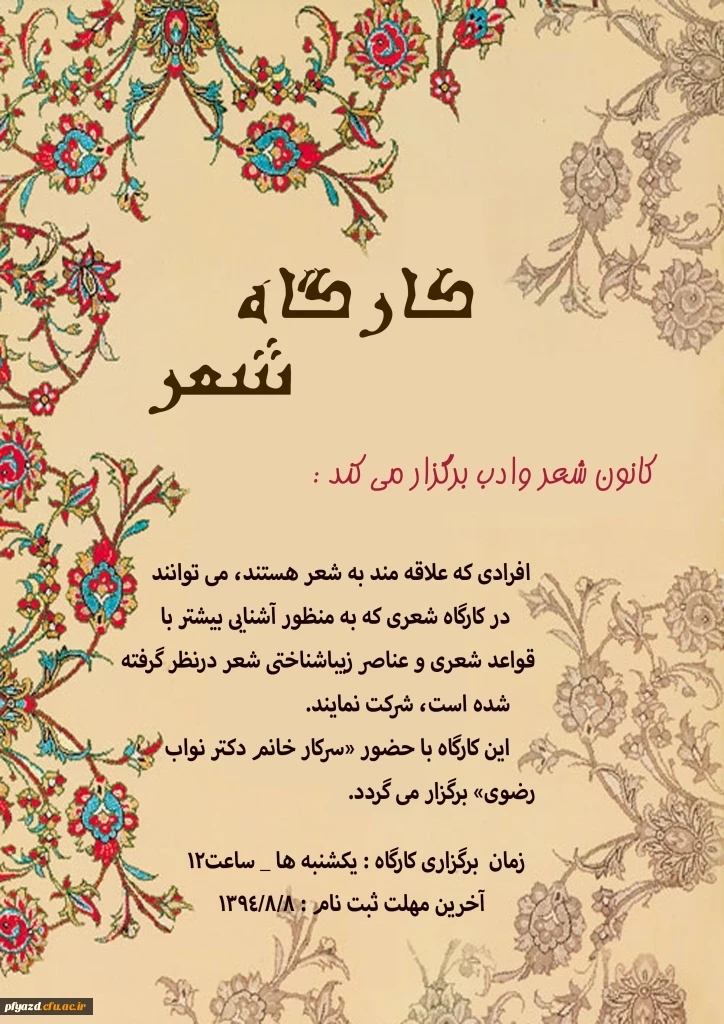 کارگاه
شعر
کانون شعر و ادب برگزار می کند :
افرادی که علاقه مند به شعر هستند، می توانند
در کارگاه شعری که به منظور آشنایی بیشتر با
قواعد شعری و عناصر زیباشناختی شعر درنظر گرفته
شده است، شرکت نمایند.
این کارگاه با حضور «سرکار خانم دکتر نواب
رضوی» برگزار می گردد.
زمان برگزاری کارگاه : یکشنبه ها _ ساعت۱۲
آخرین مهلت ثبت نام : ۱۳۹٤/۸/۸
pfyazd.cfu.ac.ir